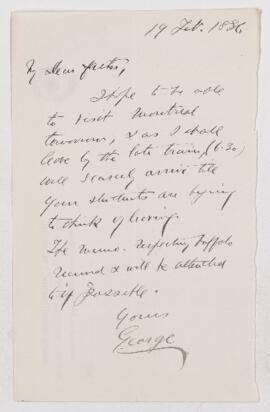 19 Feb. 1886
My dear father,
I hope to be able
to visit Montreal
tomorrow, & as I shall
leave by the late train, (6.30)
will scarcely arrive till
your students are
to think of leaving.
The memo. respecting buffalo
received & will be attended
to if possible.
Yours
George